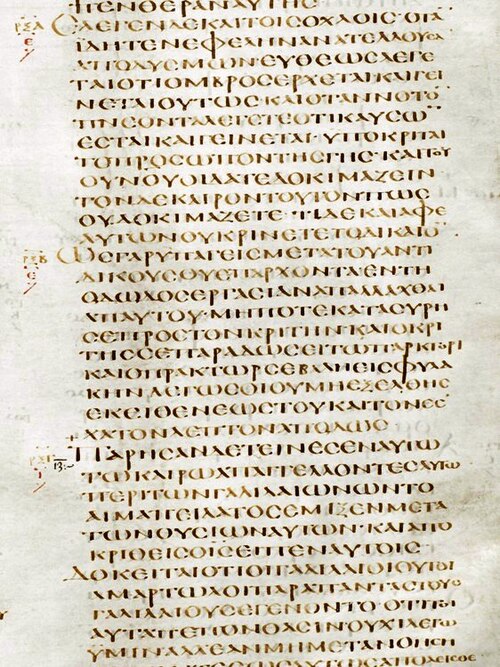 ΠΕΝΘΕΡΑΝΑΥΤΗϹ
ΕΛΕΓΕΝΔΕΚΑΙΤΟΙϹΟΧΛΟΙϹ·ΟΤΑ
ΙΔΗΤΕΝΕΦΕΛΗΝΑΝΑΤΕΛΛΟΥϹΑ
ΑΠΟΔΥϹΜΩΝ·ΕΥΘΕΩϹΛΕΓΕ
ΤΑΙΟΤΙΟΜΒΡΟϹΕΡΧΕΤΑΙ·ΚΑΙΓΕΙ
ΝΕΤΑΙΟΥΤΩϹ·ΚΑΙΟΤΑΝΝΟΤΟ
ΠΝΕΟΝΤΑΛΕΓΕΤΕΟΤΙΚΑΥϹΩ
ΕϹΤΑΙΚΑΙΓΕΙΝΕΤΑΙ·ΥΠΟΚΡΙΤΑΙ
ΤΟΠΡΟϹΩΠΟΝΤΗϹΓΗϹ·ΚΑΙΤΟΥ
ΟΥΝΟΥΟΙΔΑΤΕΔΟΚΙΜΑΖΕΙΝ
ΤΟΝΔΕΚΑΙΡΟΝΤΟΥΤΟΝΠΩϹ
ΟΥΔΟΚΙΜΑΖΕΤΕ·ΤΙΔΕΚΑΙΑΦΕ
ΑΥΤΩΝΟΥΚΡΙΝΕΤΕΤΟΔΙΚΑΙΟ
ΩϹΓΑΡΥΠΑΓΕΙϹΜΕΤΑΤΟΥΑΝΤΙ
ΔΙΚΟΥϹΟΥϹΠΑΡΧΟΝΤΑΕΝΤΗ
ΟΔΩΔΟϹΕΡΓΑϹΙΑΝΑΠΑΛΛΑΧΘΑΙ
ΑΠΑΥΤΟΥ·ΜΗΠΟΤΕΚΑΤΑϹΥΡΗ
ϹΕΠΡΟϹΤΟΝΚΡΙΤΗΝ·ΚΑΙΟΚΡΙ
ΤΗϹϹΕΠΑΡΑΔΩϹΕΙΤΩΠΡΑΚΤΟΡΙ
ΚΑΙΟΠΡΑΚΤΩΡϹΕΒΑΛΗΕΙϹΦΥΛΑ
ΚΗΝΛΕΓΩϹΟΙΟΥΜΗΕΞΕΛΘΗϹ
ΕΚΕΙΘΕΝΕΩϹΤΟΥΚΑΙΤΟΝΕϹ
ΧΑΤΟΝΛΕΠΤΟΝΑΠΟΔΩϹ
ΠΑΡΗϹΑΝΔΕΤΕΙΝΕϹΕΝΑΥΤΩ
ΤΩΚΑΙΡΩΑΠΑΓΓΕΛΛΟΝΤΕϹΑΥΤΩ
ΠΕΡΙΤΩΝΓΑΛΙΛΑΙΩΝΩΝΤΟ
ΑΙΜΑΠΕΙΛΑΤΟϹΕΜΙΞΕΝΜΕΤΑ
ΤΩΝΘΥϹΙΩΝΑΥΤΩΝ·ΚΑΙΑΠΟ
ΚΡΙΘΕΙϹΟΙϹΕΙΠΕΝΑΥΤΟΙϹ
ΔΟΚΕΙΤΑΙΟΤΙΟΙΓΑΛΙΛΑΙΟΙΟΥΤΟΙ
ΑΜΑΡΤΩΛΟΙΠΑΡΑΠΑΝΤΑϹΤΟΥϹ
ΓΑΛΙΛΑΙΟΥϹΕΓΕΝΟΝΤΟ·ΟΤΙΤΑ
ΑΥΤΑΠΕΠΟΝΘΑϹΙΝΟΥΧΙΛΕΓΩ
ΥΜΙΝΑΛΛΕΑΝΜΗΜΕΤΑΝΟΗϹΗ